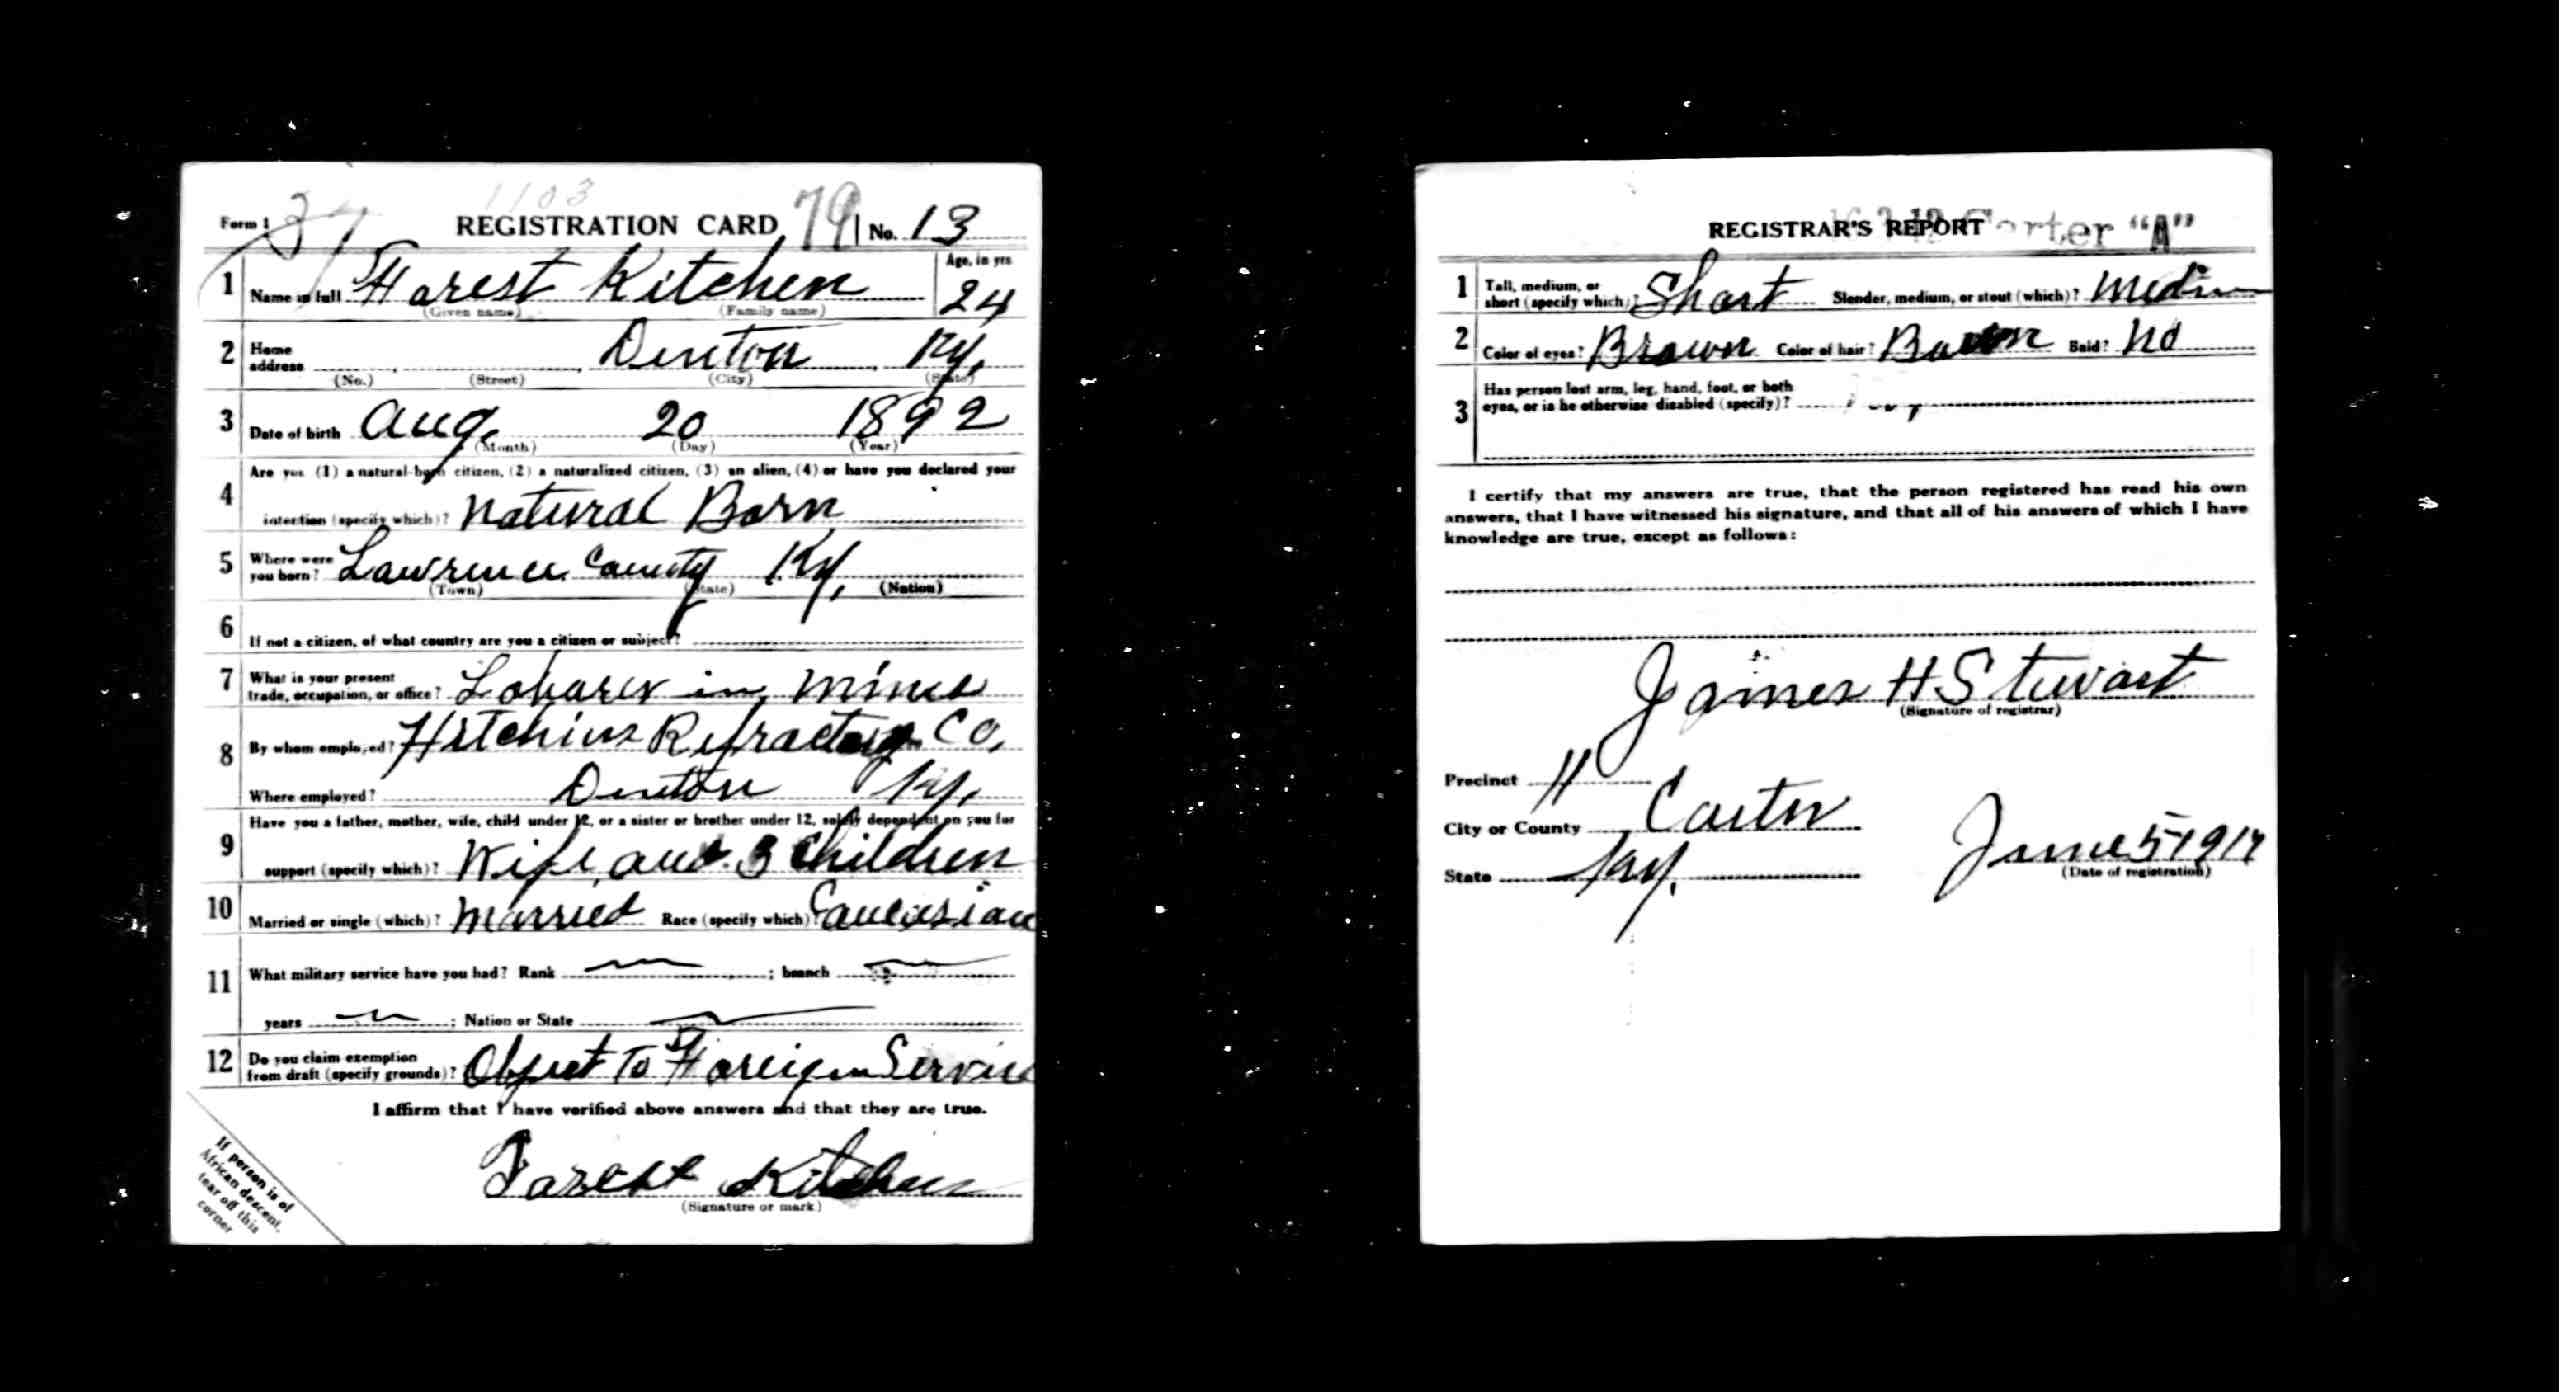 1103
Form 1 37 REGISTRATION CARD 79 No. 13
1 Name in full Forest Kitchen Age, in yrs 24
(Given name) (Family name)
2 Home address Denton Ky.
(No.) (Street) (City) (State)
3 Date of birth Aug. 20 1892
(Month) (Day) (Year)
4 Are you (1) a natural-born citizen, (2) a naturalized citizen, (3) an alien, (4) or have you declared your
intention (specify which)? Natural Born
5 Where were you born? Lawrence County Ky.
(Town) (State) (Nation)
6 If not a citizen, of what country are you a citizen or subject?
7 What is your present trade, occupation, or office? Lobarer in mines
8 By whom employed? Hitchins Refractory Co,
Where employed? Denton Ky.
9 Have you a father, mother, wife, child under 12, or a sister or brother under 12, solely dependent on you for
support (specify which)? Wife, and 3 Children
10 Married or single (which)? Married Race (specify which)? Caucasian
11 What military service have you had? Rank ; branch
years ; Nation or State
12 Do you claim exemption from draft (specify grounds)? Object To Foreign Service
I affirm that I have verified above answers and that they are true.
Forest Kitchen
(Signature or mark)
If person is of
African descent,
tear off this
corner
REGISTRAR'S REPORT "A"
1 Tall, medium, or short (specify which)? Short Slender, medium, or stout (which)? Medium
2 Color of eyes? Brown Color of hair? Brown Bald? No
3 Has person lost arm, leg, hand, foot, or both
eyes, or is he otherwise disabled (specify)?
I certify that my answers are true, that the person registered has read his own
answers, that I have witnessed his signature, and that all of his answers of which I have
knowledge are true, except as follows:
James H Stewart
(Signature of registrar)
Precinct 11
City or County Carter
State Ky. June 5 1917
(Date of registration)